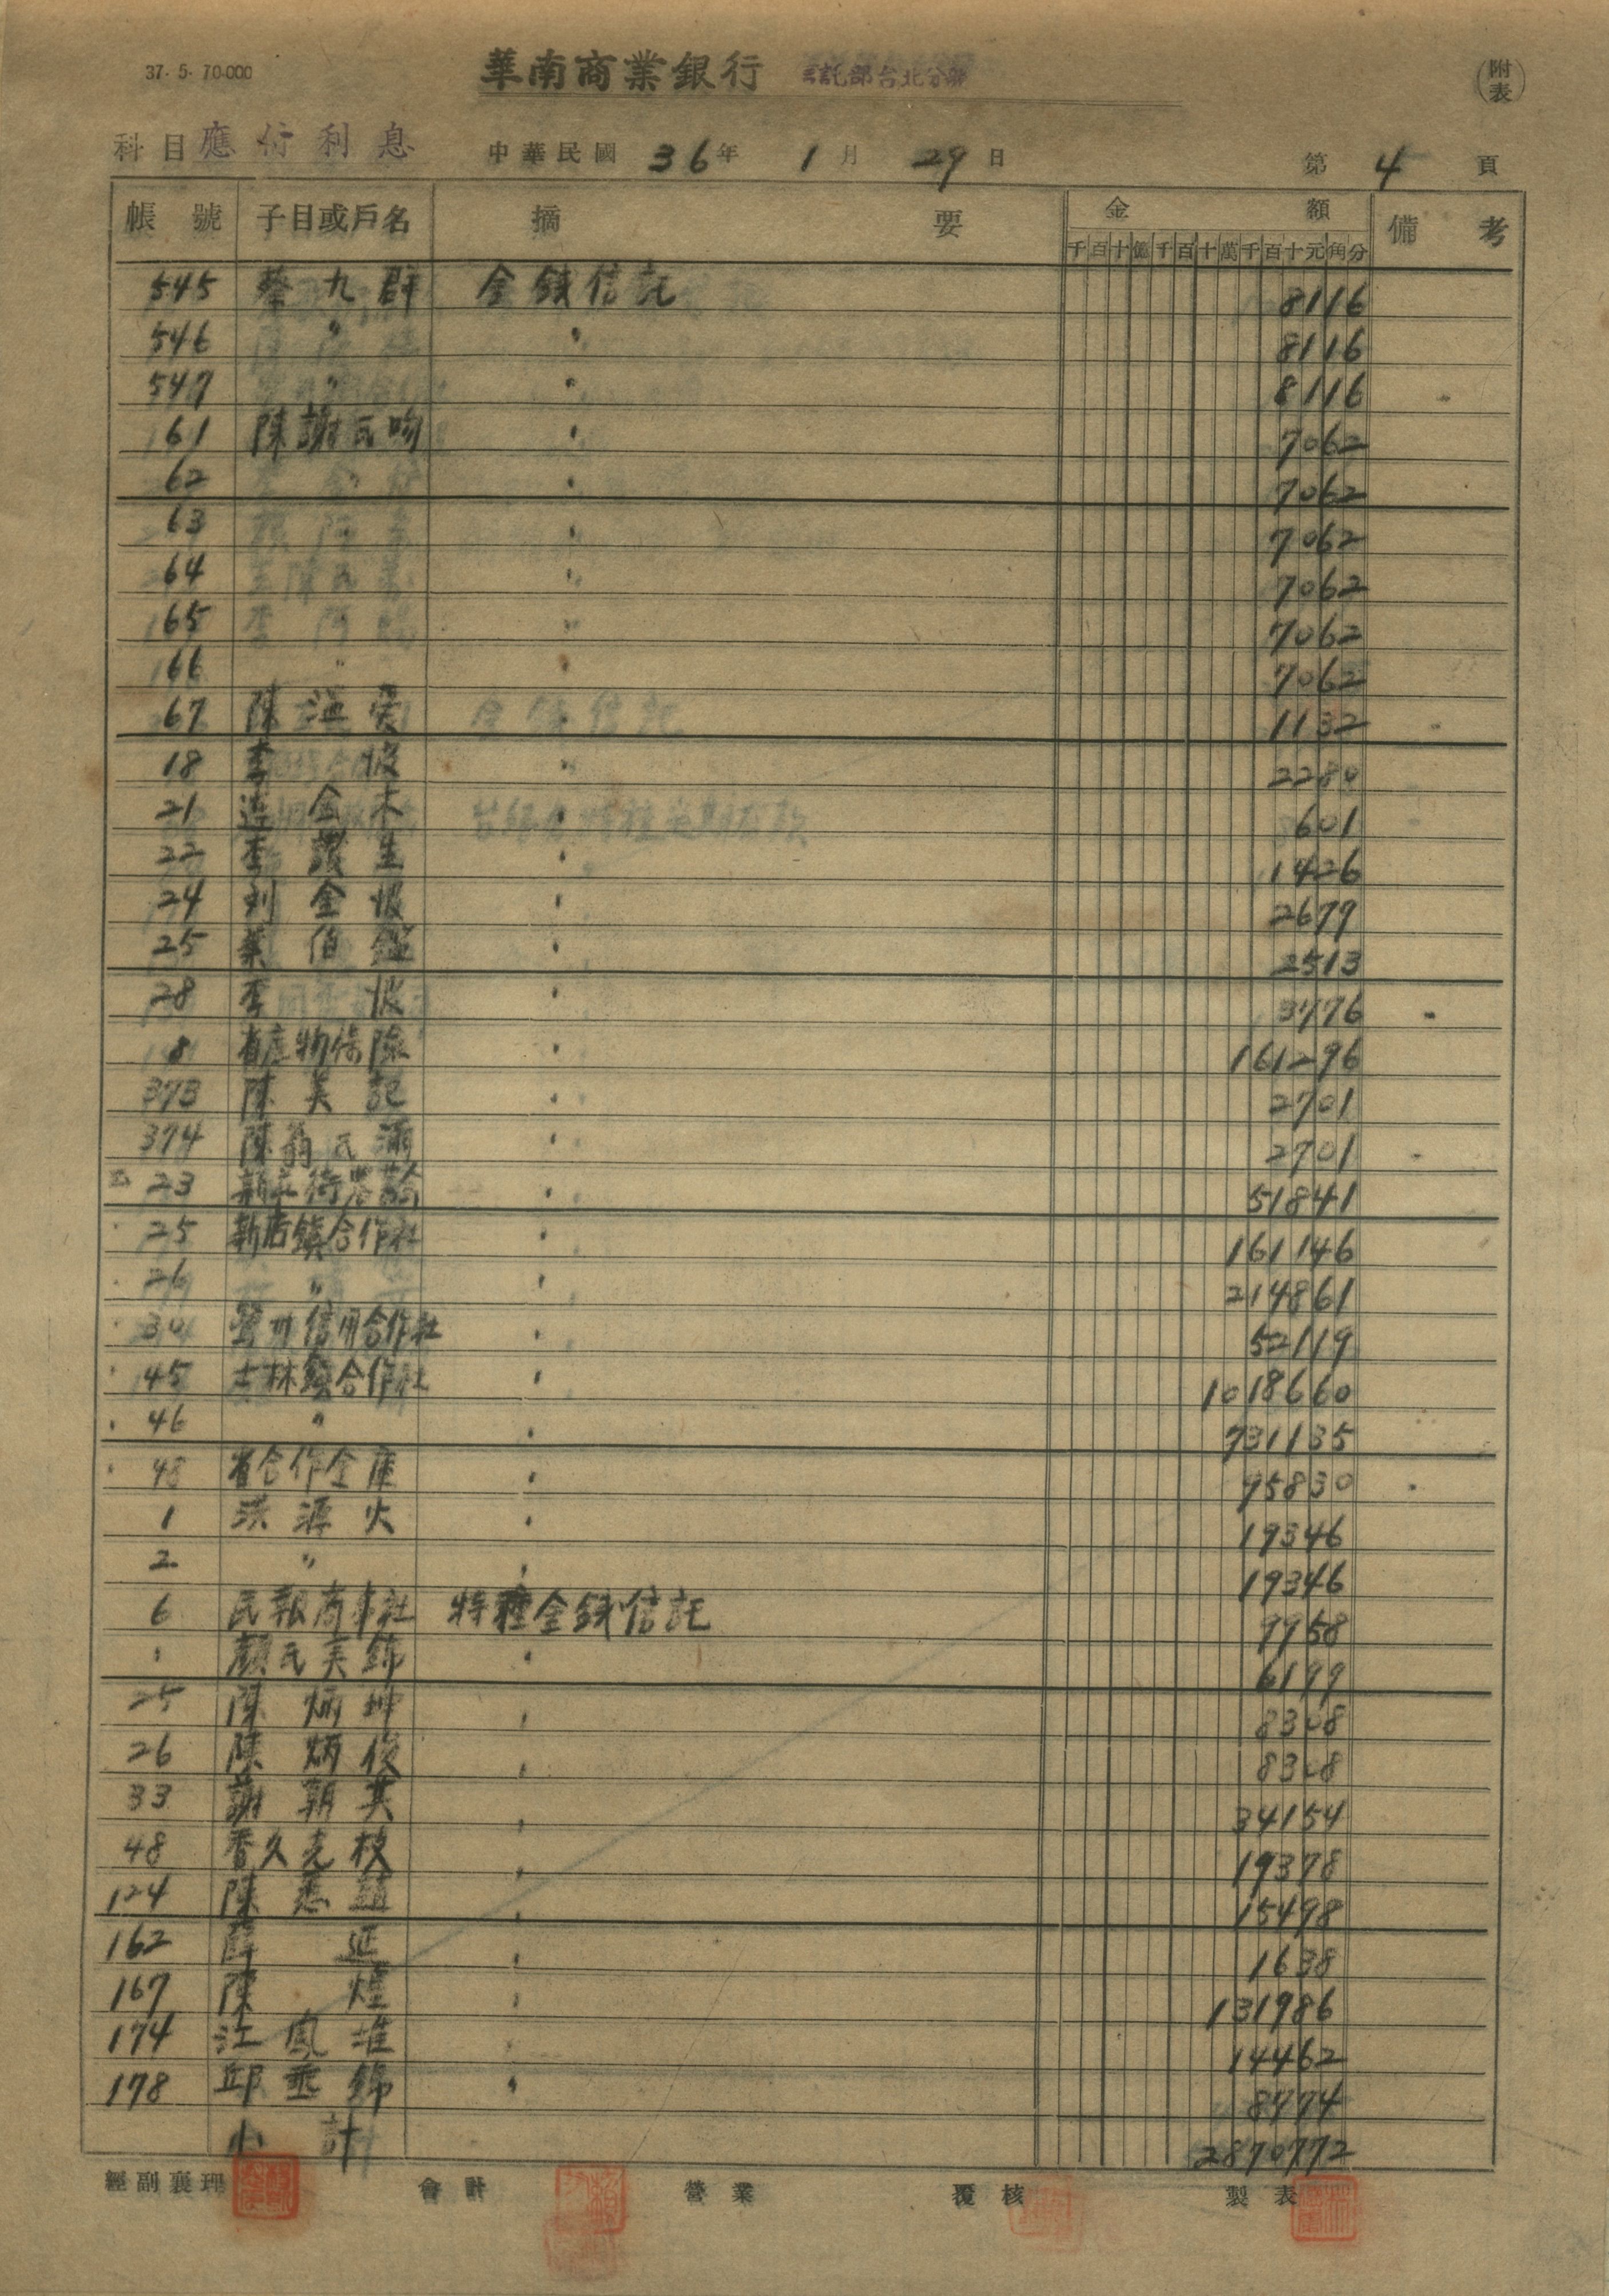 37. 5. 70.000
華南商業銀行 信託部台北分部
(附表)
科目 應付利息 中華民國 36年 1月 29日 第 4 頁
帳號 子目或戶名 摘要 金額 備考
千百十億千百十萬千百十元角分
545 蔡九群 金錢信託 8116
546 〃 〃 8116
547 〃 〃 8116
161 陳謝氏吻 〃 7062
62 〃 〃 7062
63 〃 7062
64 〃 7062
165 〃 7062
166 〃 〃 7062
67 陳 〃 1132
18 李 〃 2280
21 金木 〃 601
22 李讚生 〃 1426
24 劉金 〃 2679
25 葉伯鑑 〃 2513
28 李 〃 3776
8 省產物保險 〃 161296
373 陳美記 〃 2701
374 陳翁氏滿 〃 2701
23 〃 51841
25 新店鎮合作社 〃 161146
26 〃 〃 214861
30 鶯州信用合作社 〃 52119
45 士林鎮合作社 〃 1018660
46 〃 〃 731135
48 省合作金庫 〃 95830
1 洪源火 〃 19346
2 〃 〃 19346
6 民報商事社 特種金錢信託 9958
〃 顏氏美錦 〃 6199
25 陳炳坤 〃 8308
26 陳炳俊 〃 8308
33 謝朝其 〃 34154
48 香久光枝 〃 19378
124 陳 〃 15498
162 薛延 〃 1638
167 陳煌 〃 131986
174 江鳳 〃 14462
178 邱垂錦 〃 8774
小計 2870772
經副襄理 會計 營業 覆核 製表